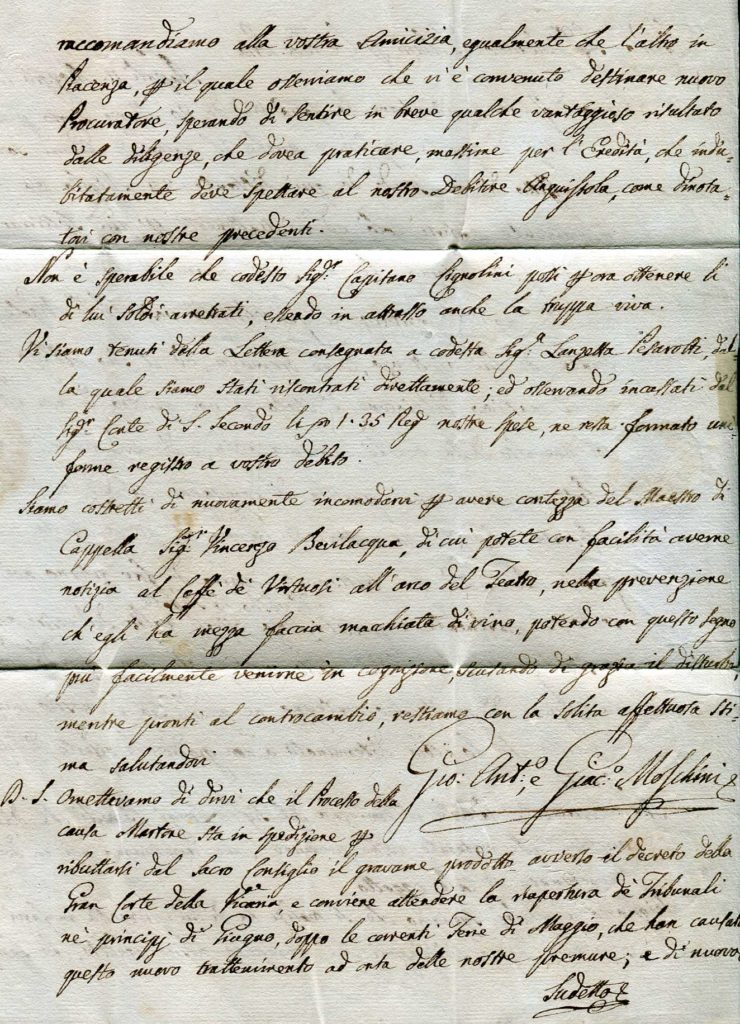 raccomandiamo alla vostra Amicizia, egualmente che l'altro in
Piacenza, ꝑ il quale osserviamo che vi è convenuto destinare nuovo
Procuratore, sperando di sentire in breve qualche vantaggioso risultato
dalle diligenze, che dovea praticare, massime per l'Eredità, che indu-
bitatamente deve spettare al nostro Debitore Anguissola, come dinota-
tovi con nostre precedenti.
Non è sperabile che codesto Sig.r Capitano Cignolini possi ꝑ ora ottenere li
di lui soldi arretrati, essendo in attrasso anche la truppa viva.
Vi siamo tenuti della Lettera consegnata a codesta Sig.a Lanzetta Pesarotti, dal-
la quale siamo stati riscontrati direttamente; ed osservando incassati dal
Sig.r Conte di S. Secondo li 1.35 nostre spese, ne resta formato uni-
forme registro a vostro debito.
Siamo costretti di nuovamente incomodarvi ꝑ avere contezza del Maestro di
Cappella Sig.r Vincenzo Bevilacqua, di cui potete con facilità averne
notizia al Caffè de' Virtuosi all'arco del Teatro, nella prevenzione
ch'egli ha mezza faccia macchiata di vino, potendo con questo segno
più facilmente venirne in cognizione, scusando di grazia il disturbo,
mentre pronti al controcambio, restiamo con la solita affettuosa sti-
ma salutandovi
Gio: Ant.o, e Giac.o Moschini
P. S. Omettevamo di dirvi che il Processo della
causa Martone sta in spedizione ꝑ
ributtarsi dal Sacro Consiglio il gravame prodotto avverso il decreto della
Gran Corte della Vicaria e conviene attendere la riapertura de' Tribunali
ne' principj di Giugno, doppo le correnti Ferie di Maggio, che han causato
questo nuovo trattenimento ad onta delle nostre premure; e di nuovo
Sudetto